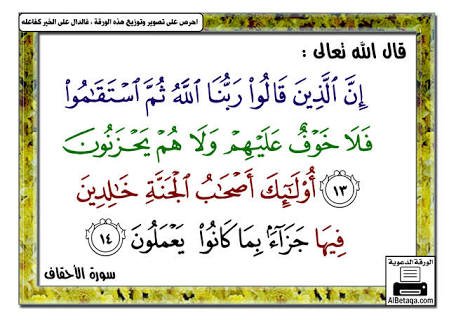 احرص على تصوير وتوزيع هذه الورقة ، فالدال على الخير كفاعله
قال الله تعالى :
إِنَّ ٱلَّذِينَ قَالُواْ رَبُّنَا ٱللَّهُ ثُمَّ ٱسْتَقَـٰمُواْ
فَلَا خَوْفٌ عَلَيْهِمْ وَلَا هُمْ يَحْزَنُونَ
١٣ أُوْلَـٰٓئِكَ أَصْحَـٰبُ ٱلْجَنَّةِ خَـٰلِدِينَ
فِيهَا جَزَآءًۢ بِمَا كَانُواْ يَعْمَلُونَ ١٤
سورة الأحقاف
الورقة الدعوية
AlBetaqa.com